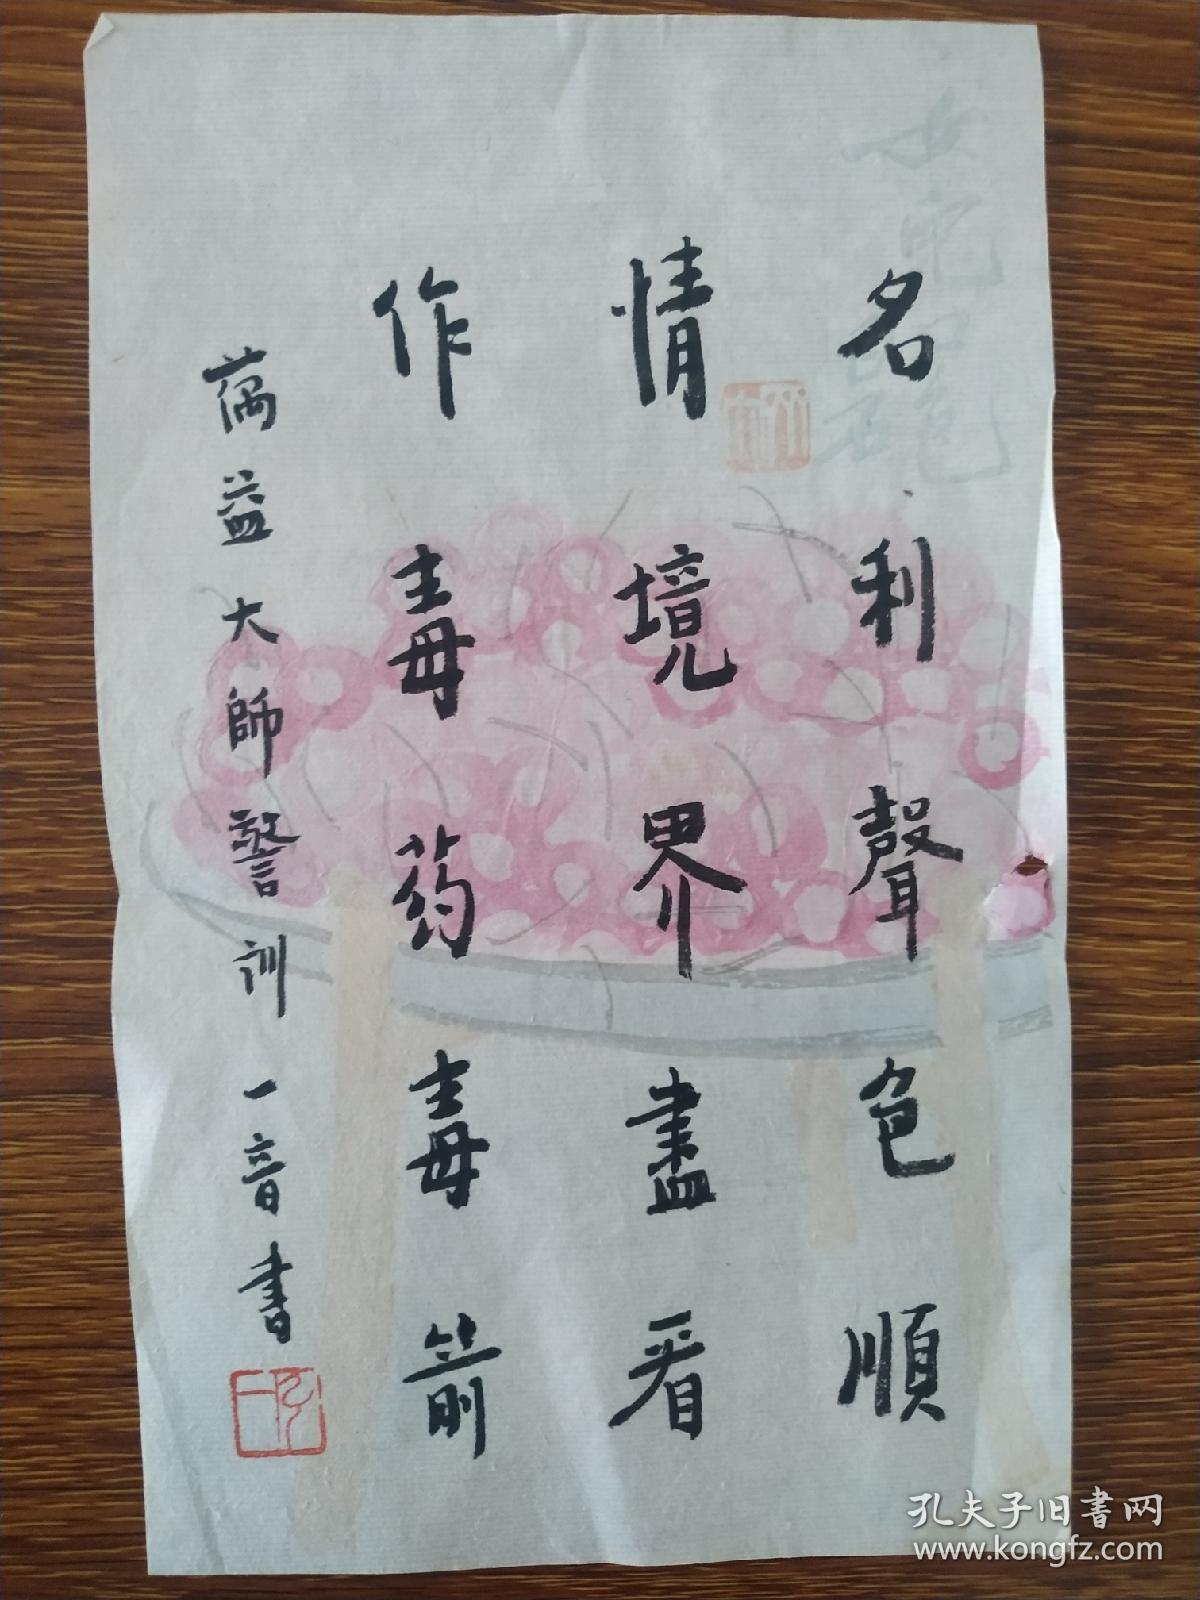 名利聲色順
情境界盡看
作毒药毒箭
蕅益大師警訓一音書
孔夫子旧书网
www.kongfz.com